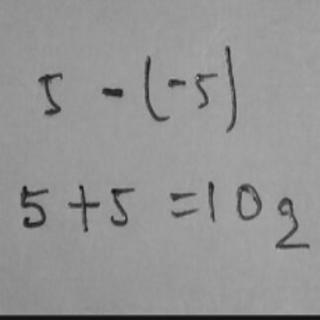 5 - (-5)
5 + 5 = 10